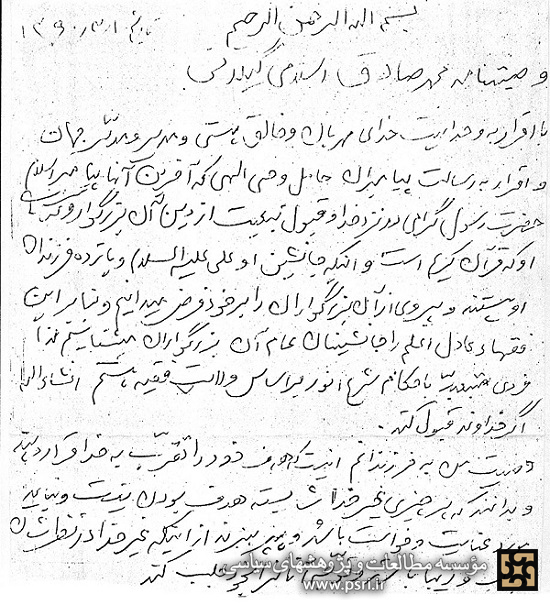 بسم الله الرحمن الرحیم
وصیتنامه محمد صادق اسلامی گیلانی
با اقرار به وحدانیت خدای مهربان و خالق هستی و مدبر جهان
و اقرار به رسالت پیامبران حامل وحی الهی که آخرین آنها پیامبر اسلام
حضرت رسول گرامی نزد خدا و قبول تبعیت از دین آن بزرگوار و
او که قرآن کریم است و اینکه جانشین او علی علیه السلام و یازده فرزندان
او هستند و پیروی از آن بزرگواران را بر خود فرض میدانیم و بنابراین
فقهاء عادل اعلم را جانشینان عام آن بزرگواران میشناسیم لذا
فردی متعبد به احکام شرع انور بر اساس ولایت فقیه هستم انشاءالله
اگر خداوند قبول کند.
وصیت من به فرزندانم اینست که هدف خود را تقرب به خدا قرار دهند
و بدانند که هر چیزی غیر خدا شایسته هدف بودن نیست و نباید
مورد عنایت و خواست باشد و بپرهیزند از اینکه غیر خدا در نظرشان
جلب کند
مؤسسه مطالعات و پژوهشهای سیاسی
www.psri.ir